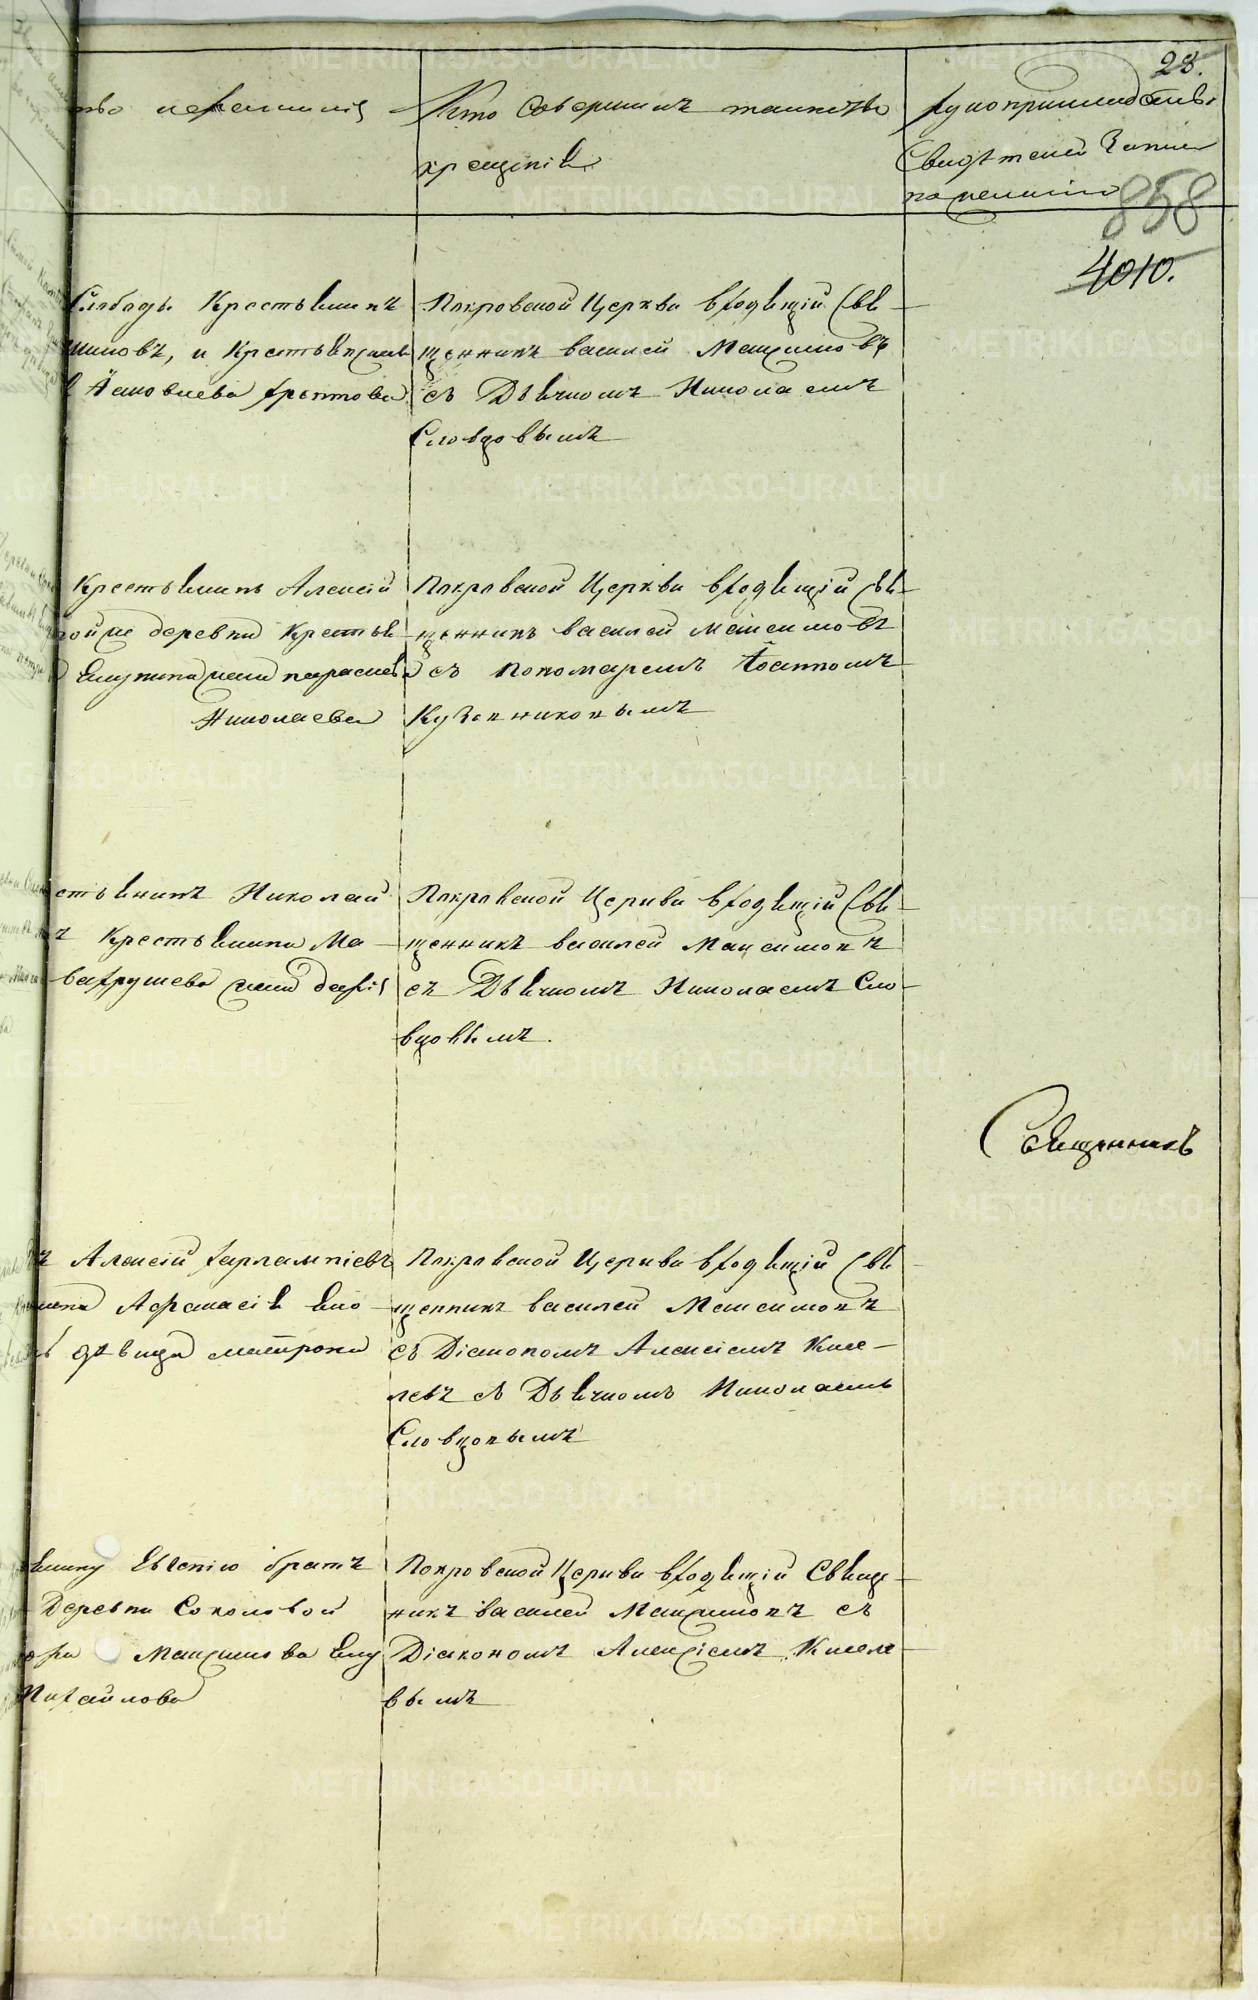 28.
Кто совершилъ таинство
крещенія
Рукоприкладство
Свидѣтелей Записи
по желанію
858
4010.
Слободы Крестьянинъ
шиловъ, и Крестьянская
Яковлева
Покровской Церкви входящій Свя-
щенникъ василей Максимовъ
съ Дьячкомъ Николаемъ
Словцовымъ
Крестьянинъ Алексій
тойже деревни Крестья
жена параскева
Николаева
Покровской Церкви входящій Свя-
щенникъ василей Максимовъ
съ Пономаремъ Іоанномъ
Кузовниковымъ
стьянинъ Николай
ъ Крестьянина Ма-
вахрушева жена дарія
Покровской Церкви входящій Свя-
щенникъ василей Максимовъ
съ Дьячкомъ Николаемъ Сло-
вцовымъ.
Священникъ
ъ Алексій харлампіевъ
Афанасія
дѣвица матрона
Покровской Церкви входящій Свя-
щенникъ василей Максимовъ
съ Діакономъ Алексіемъ Кисе-
левъ съ Дьячкомъ Николаемъ
Словцовымъ
янину Евгенію братъ
Деревни Соколовой
Максимова
Михайлова
Покровской Церкви входящій Свяще-
никъ василей Максимовъ съ
Діакономъ Алексіемъ Киселе-
вымъ
METRIKI.GASO-URAL.RU